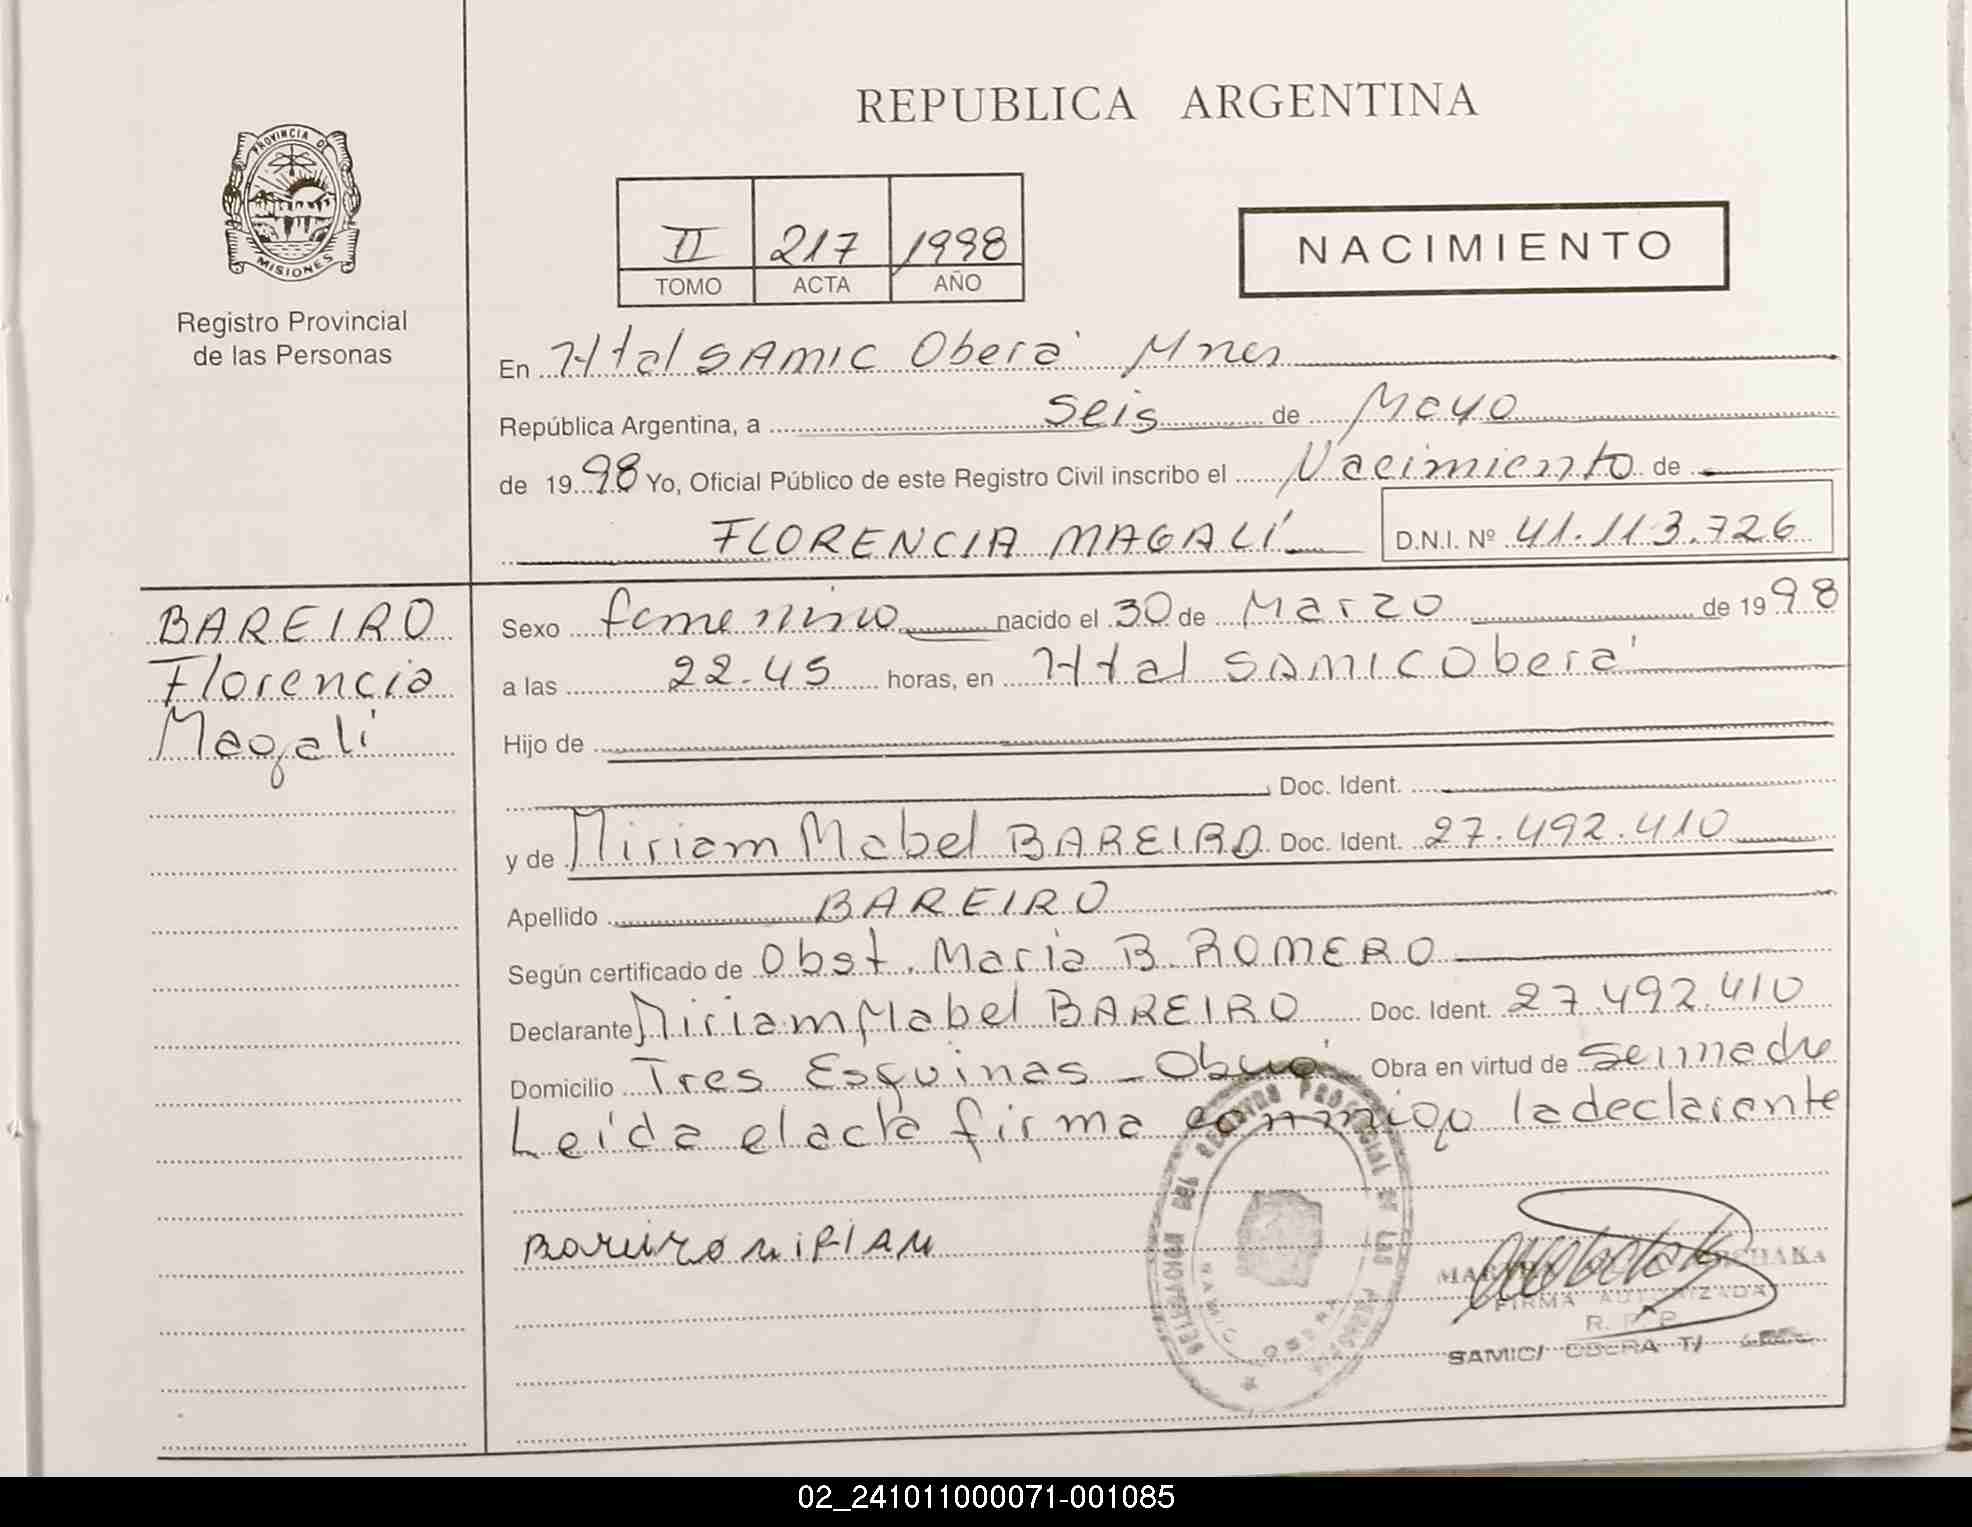 REPUBLICA ARGENTINA
PROVINCIA DE
MISIONES
Registro Provincial
de las Personas
II 217 1998
TOMO ACTA AÑO
NACIMIENTO
En Htal SAMIC Oberá Mnes
República Argentina, a seis de Mayo
de 1998 Yo, Oficial Público de este Registro Civil inscribo el Nacimiento de
FLORENCIA MAGALÍ D.N.I. Nº 41.113.726
BAREIRO
Florencia
Magalí
Sexo femenino nacido el 30 de Marzo de 1998
a las 22.45 horas, en Htal SAMIC Oberá
Hijo de
Doc. Ident.
y de Miriam Mabel BAREIRO Doc. Ident. 27.492.410
Apellido BAREIRO
Según certificado de Obst. Maria B. ROMERO
Declarante Miriam Mabel BAREIRO Doc. Ident. 27.492.410
Domicilio Tres Esquinas - Oberá Obra en virtud de ser madre
Leída el acta firma conmigo la declarante
Bareiro MIRIAM
REGISTRO PROVINCIAL DE LAS PERSONAS
FIRMA AUTORIZADA
R. P. P.
SAMIC/ OBERA T/
02_241011000071-001085